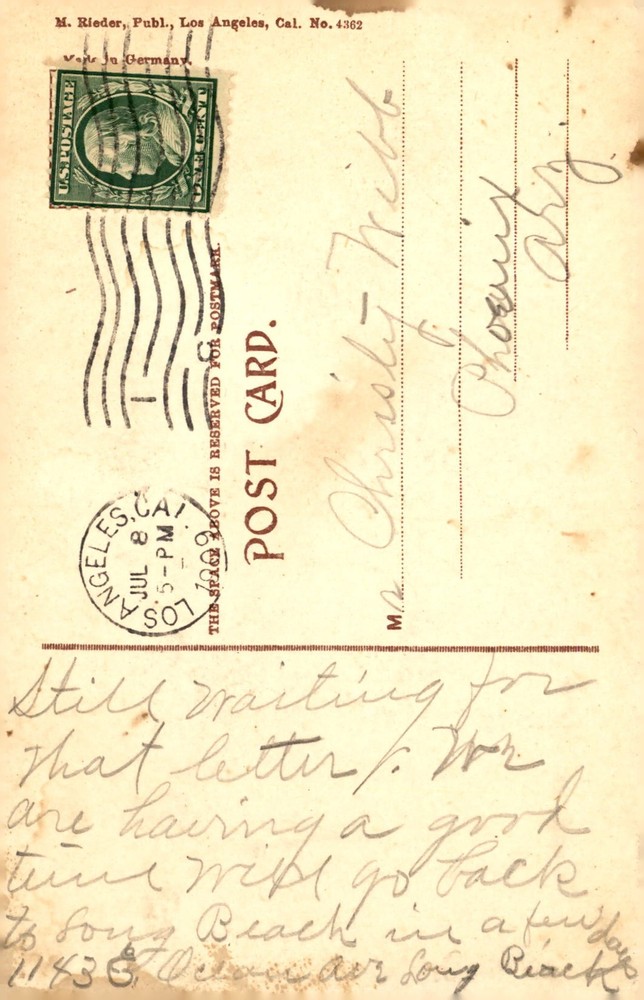 M. Rieder, Publ., Los Angeles, Cal. No. 4362
Made in Germany.
U.S. POSTAGE
ONE CENT
THE SPACE ABOVE IS RESERVED FOR POSTMARK.
POST CARD.
LOS ANGELES, CAL
JUL 8
5-PM
1909
Mr Christy Webb
Phoenix
Ariz.
Still waiting for
that letter. We
are having a good
time will go back
to Long Beach in a few days
1143 E Ocean ave Long Beach